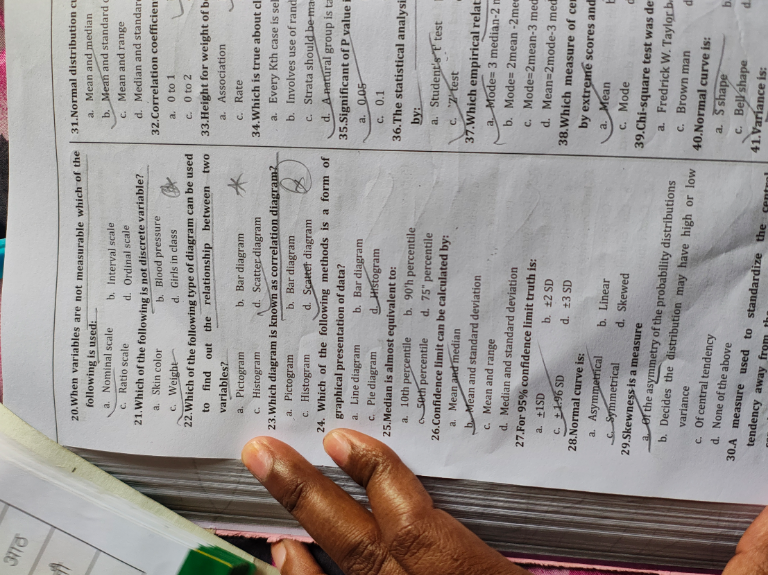 20.When variables are not measurable which of the
following is used:
a. Nominal scale b. Interval scale
c. Ratio scale d. Ordinal scale
21.Which of the following is not discrete variable?
a. Skin color b. Blood pressure
c. Weight d. Girls in class
22.Which of the following type of diagram can be used
to find out the relationship between two
variables?
a. Pictogram b. Bar diagram
c. Histogram d. Scatter diagram
23.Which diagram is known as correlation diagram?
a. Pictogram b. Bar diagram
c. Histogram d. Scatter diagram
24. Which of the following methods is a form of
graphical presentation of data?
a. Line diagram b. Bar diagram
c. Pie diagram d. Histogram
25.Median is almost equivalent to:
a. 10th percentile b. 90'h percentile
c. 50th percentile d. 75" percentile
26.Confidence limit can be calculated by:
a. Mean and median
b. Mean and standard deviation
c. Mean and range
d. Median and standard deviation
27.For 95% confidence limit truth is:
a. ±1SD b. ±2 SD
c. ±1.96 SD d. ±3 SD
28.Normal curve is:
a. Asymmetrical b. Linear
c. Symmetrical d. Skewed
29.Skewness is a measure
a. Of the asymmetry of the probability distributions
b. Decides the distribution may have high or low
variance
c. Of central tendency
d. None of the above
30.A measure used to standardize the central
tendency away from the
31.Normal distribution
a. Mean and median
b. Mean and standard
c. Mean and range
d. Median and standard
32.Correlation coefficient
a. 0 to 1
c. 0 to 2
33.Height for weight of
a. Association
c. Rate
34.Which is true about
a. Every Kth case is
b. Involves use of
c. Strata should be
d. A natural group is
35.Significant of P value
a. 0.05
c. 0.1
36.The statistical
by:
a. Student's 't' test
c. 'Z' test
37.Which empirical
a. Mode= 3 median-2
b. Mode= 2mean -2
c. Mode=2mean-3
d. Mean=2mode-3
38.Which measure of
by extreme scores and
a. Mean
c. Mode
39.Chi-square test was
a. Fredrick W. Taylor
c. Brown man
40.Normal curve is:
a. S shape
c. Bell shape
41.Variance is: